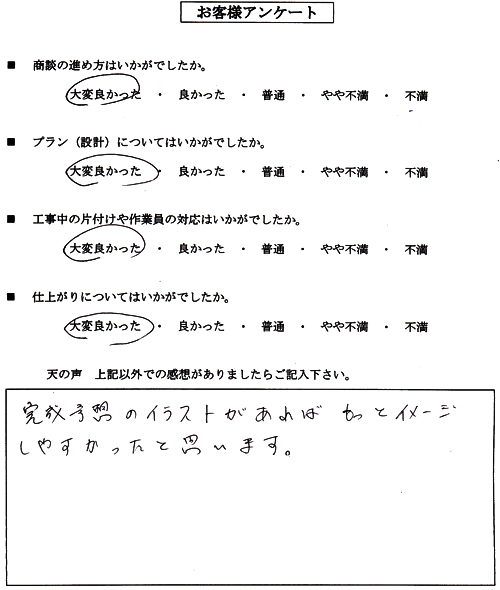 お客様アンケート
■ 商談の進め方はいかがでしたか。
大変良かった ・ 良かった ・ 普通 ・ やや不満 ・ 不満
■ プラン（設計）についてはいかがでしたか。
大変良かった ・ 良かった ・ 普通 ・ やや不満 ・ 不満
■ 工事中の片付けや作業員の対応はいかがでしたか。
大変良かった ・ 良かった ・ 普通 ・ やや不満 ・ 不満
■ 仕上がりについてはいかがでしたか。
大変良かった ・ 良かった ・ 普通 ・ やや不満 ・ 不満
天の声 上記以外での感想がありましたらご記入下さい。
完成予想のイラストがあれば もっとイメージ
しやすかったと思います。